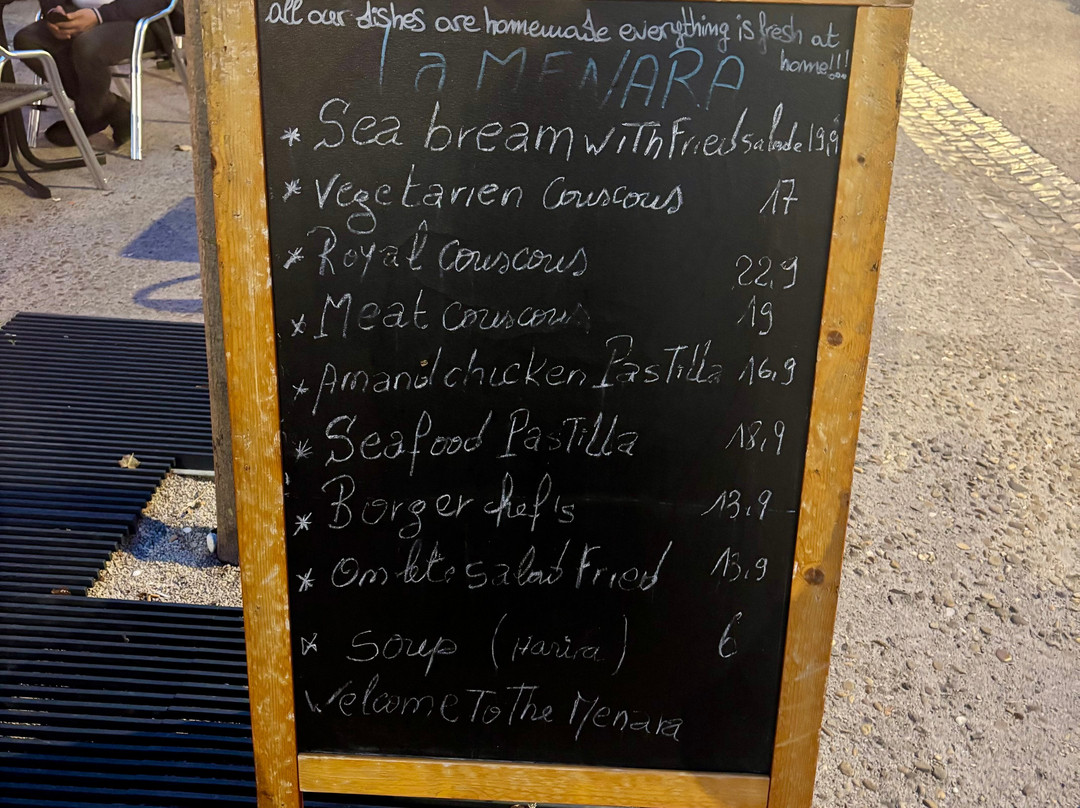 all our dishes are homemade everything is fresh at
home!!!
la MENARA
* Sea bream with Fried salade 19,9
* Vegetarien Couscous 17
* Royal couscous 22,9
* Meat couscous 19
* Amand chicken Pastilla 16,9
* Seafood Pastilla 18,9
* Borger chef's 13,9
* Omlete salad Fried 13,9
* Soup (Harira) 6
Welcome To The Menara